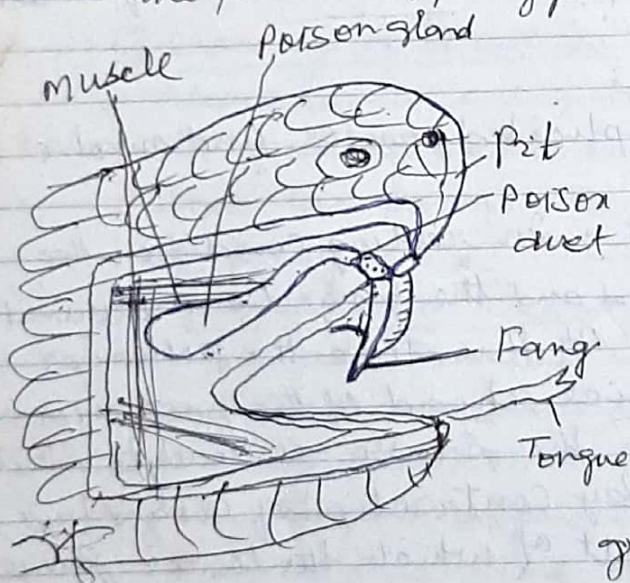 Poison gland
Muscle
Pit
Poison
duct
Fang
Tongue